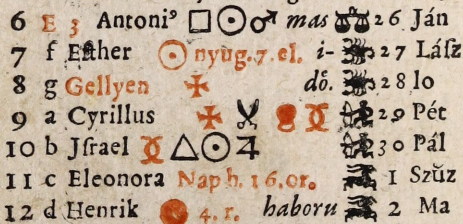 6 E 3 Antoniꝰ □☉♂ mas ♎ 26 Ján
7 f Eſther ☉ nyüg. 7. el. i- ♏ 27 Láſz
8 g Gellyen ✠ dő. ♏ 28 Io
9 a Cyrillus ✠ ♐ 29 Pét
10 b Jſrael △☉♃ ♐ 30 Pál
11 c Eleonora Nap h. 16. or. ♑ 1 Szűz
12 d Henrik 4. r. haboru ♑ 2 Ma